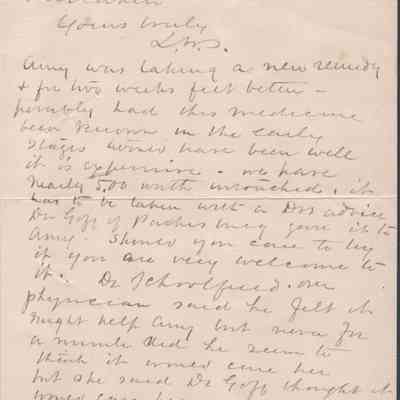 Yours truly
L.W.S.
Amy was taking a new remedy
& for two weeks felt better -
possibly had this medicine
been known in the early
stages would have been well
it is expensive. we have
nearly 5.00 worth untouched, it
has to be taken with a Drs advice
Dr Goff of gave it to
Amy. Should you care to try
it you are very welcome to
it. Dr Schoolfield. our
physician said he felt it
might help Amy but never for
a minute did he seem to
think it would cure her
but she said Dr Goff thought it
would